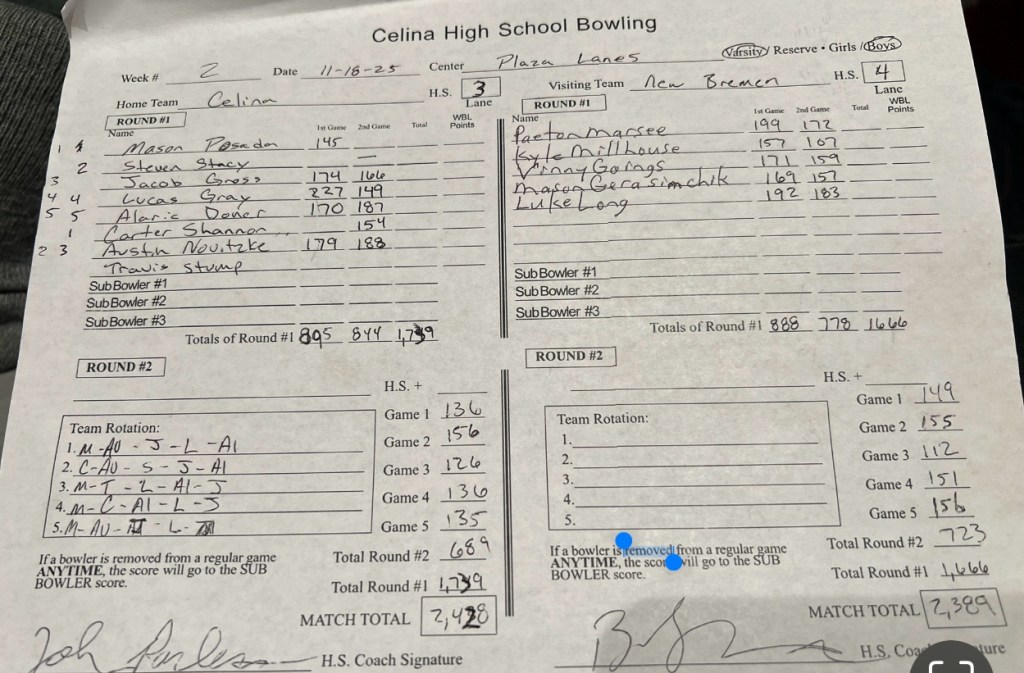 Celina High School Bowling
Week # 2 Date 11-18-25 Center Plaza Lanes Varsity / Reserve • Girls / Boys
Home Team Celina H.S. 3 Lane
Visiting Team New Bremen H.S. 4 Lane
ROUND #1
Name 1st Game 2nd Game Total WBL Points
1 1 Mason Posada 145
2 Steven Stacy —
3 Jacob Gross 174 166
4 4 Lucas Gray 227 149
5 5 Alaric Doner 170 187
1 Carter Shannon 154
2 3 Austin Novitzke 179 188
Travis Stump
Sub Bowler #1
Sub Bowler #2
Sub Bowler #3
Totals of Round #1 895 844 1,739
ROUND #1
Name 1st Game 2nd Game Total WBL Points
Paeton Marsee 199 172
Kyle Millhouse 157 107
Vinny Goings 171 159
Mason Gerasimchik 169 157
Luke Long 192 183
Sub Bowler #1
Sub Bowler #2
Sub Bowler #3
Totals of Round #1 888 778 1666
ROUND #2
H.S. +
Team Rotation:
1. M-AU-J-L-Al
2. C-AU-S-J-Al
3. M-T-L-Al-J
4. M-C-Al-L-J
5. M-AU- -L-
Game 1 136
Game 2 156
Game 3 126
Game 4 136
Game 5 135
If a bowler is removed from a regular game
ANYTIME, the score will go to the SUB
BOWLER score.
Total Round #2 689
Total Round #1 1,739
MATCH TOTAL 2,428
H.S. Coach Signature
ROUND #2
H.S. +
Team Rotation:
1.
2.
3.
4.
5.
Game 1 149
Game 2 155
Game 3 112
Game 4 151
Game 5 156
If a bowler is removed from a regular game
ANYTIME, the score will go to the SUB
BOWLER score.
Total Round #2 723
Total Round #1 1,666
MATCH TOTAL 2,389
H.S. Coach Signature